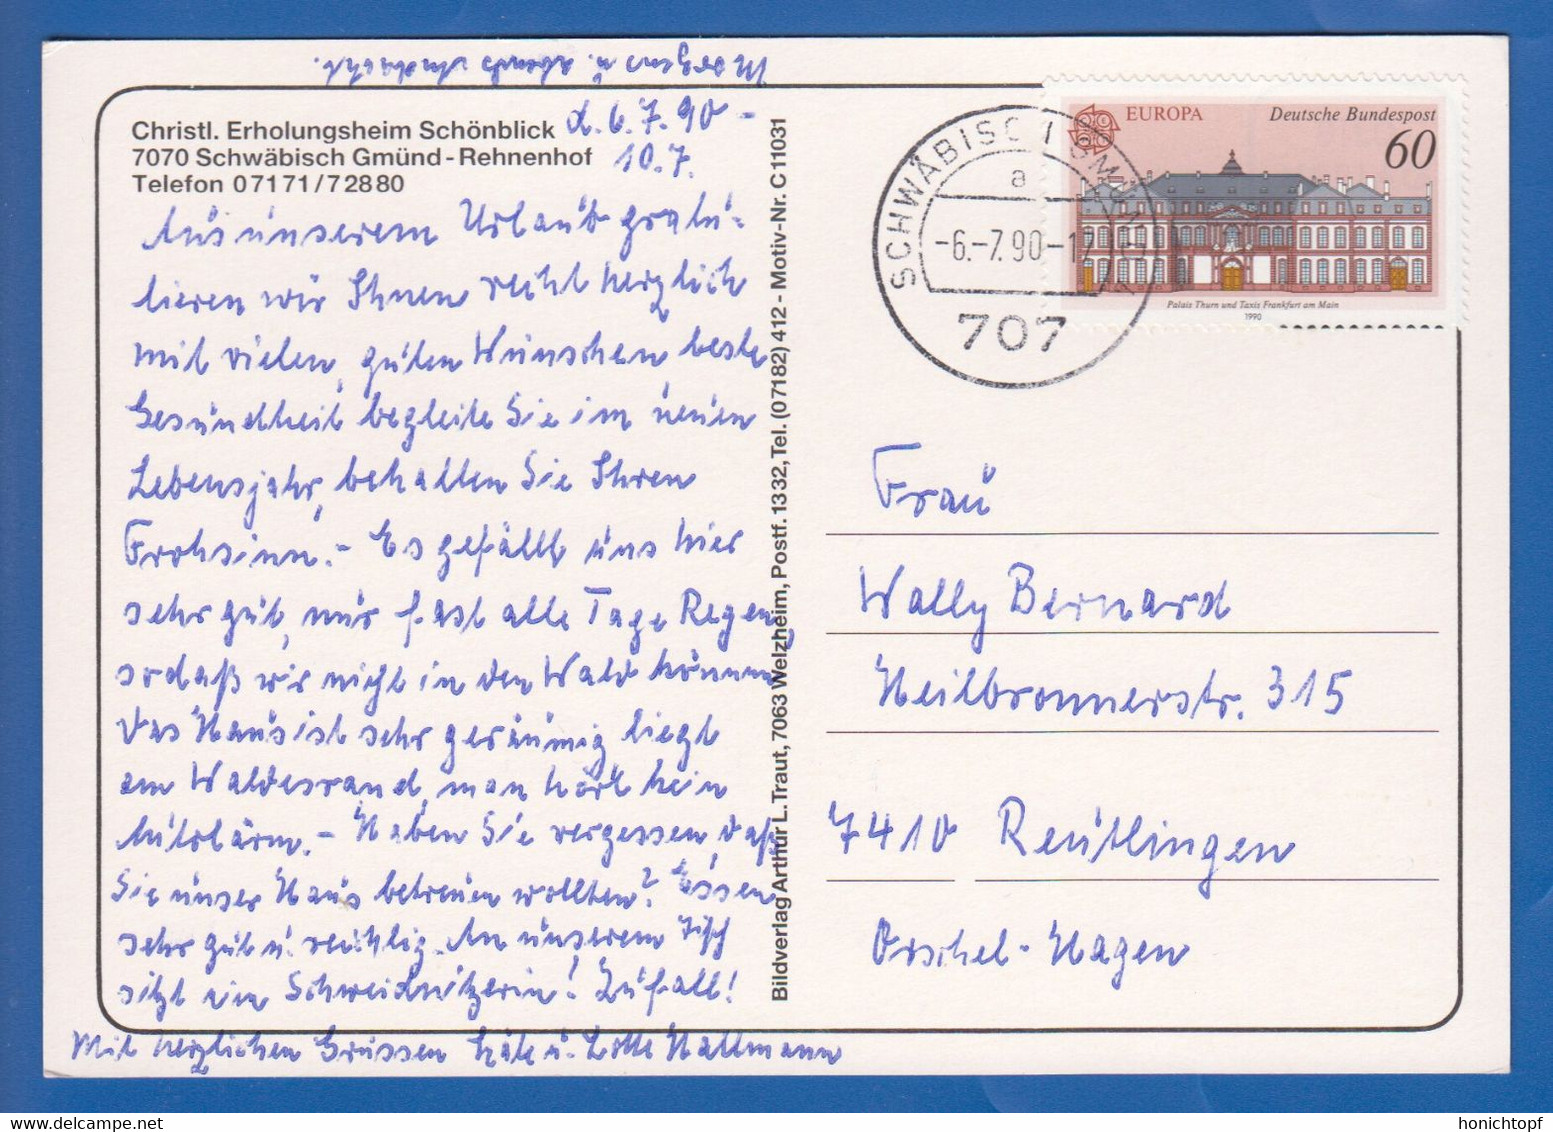 Morgen u. abends Andacht.
Christl. Erholungsheim Schönblick
7070 Schwäbisch Gmünd-Rehnenhof
Telefon 07171/72880
d. 6.7.90 -
10.7.
Aus unserem Urlaub gratu-
lieren wir Ihnen recht herzlich
mit vielen, guten Wünschen beste
Gesundheit begleite Sie im neuen
Lebensjahr, behalten Sie Ihren
Frohsinn. - Es gefällt uns hier
sehr gut, nur fast alle Tage Regen,
sodaß wir nicht in den Wald können
Das Haus ist sehr geräumig liegt
am Waldesrand, man hört kein
Autolärm. - Haben Sie vergessen, daß
Sie unser Haus betreuen wollten? Essen
sehr gut u. reichlig. An unserem Tisch
sitzt ein Schweidnitzerin! Zufall!
Mit herzlichen Grüssen Käte u. Lotte Hallmann
Bildverlag Arthur L. Traut, 7063 Welzheim, Postf. 1332, Tel. (07182) 412 - Motiv-Nr. C 11031
SCHWÄBISCH GMÜND 1
a
-6.-7.90-17
707
EUROPA
Deutsche Bundespost
60
Palais Thurn und Taxis Frankfurt am Main
1990
Frau
Wally Bernard
Heilbronnerstr. 315
7410 Reutlingen
Orschel-Hagen
honichtopf